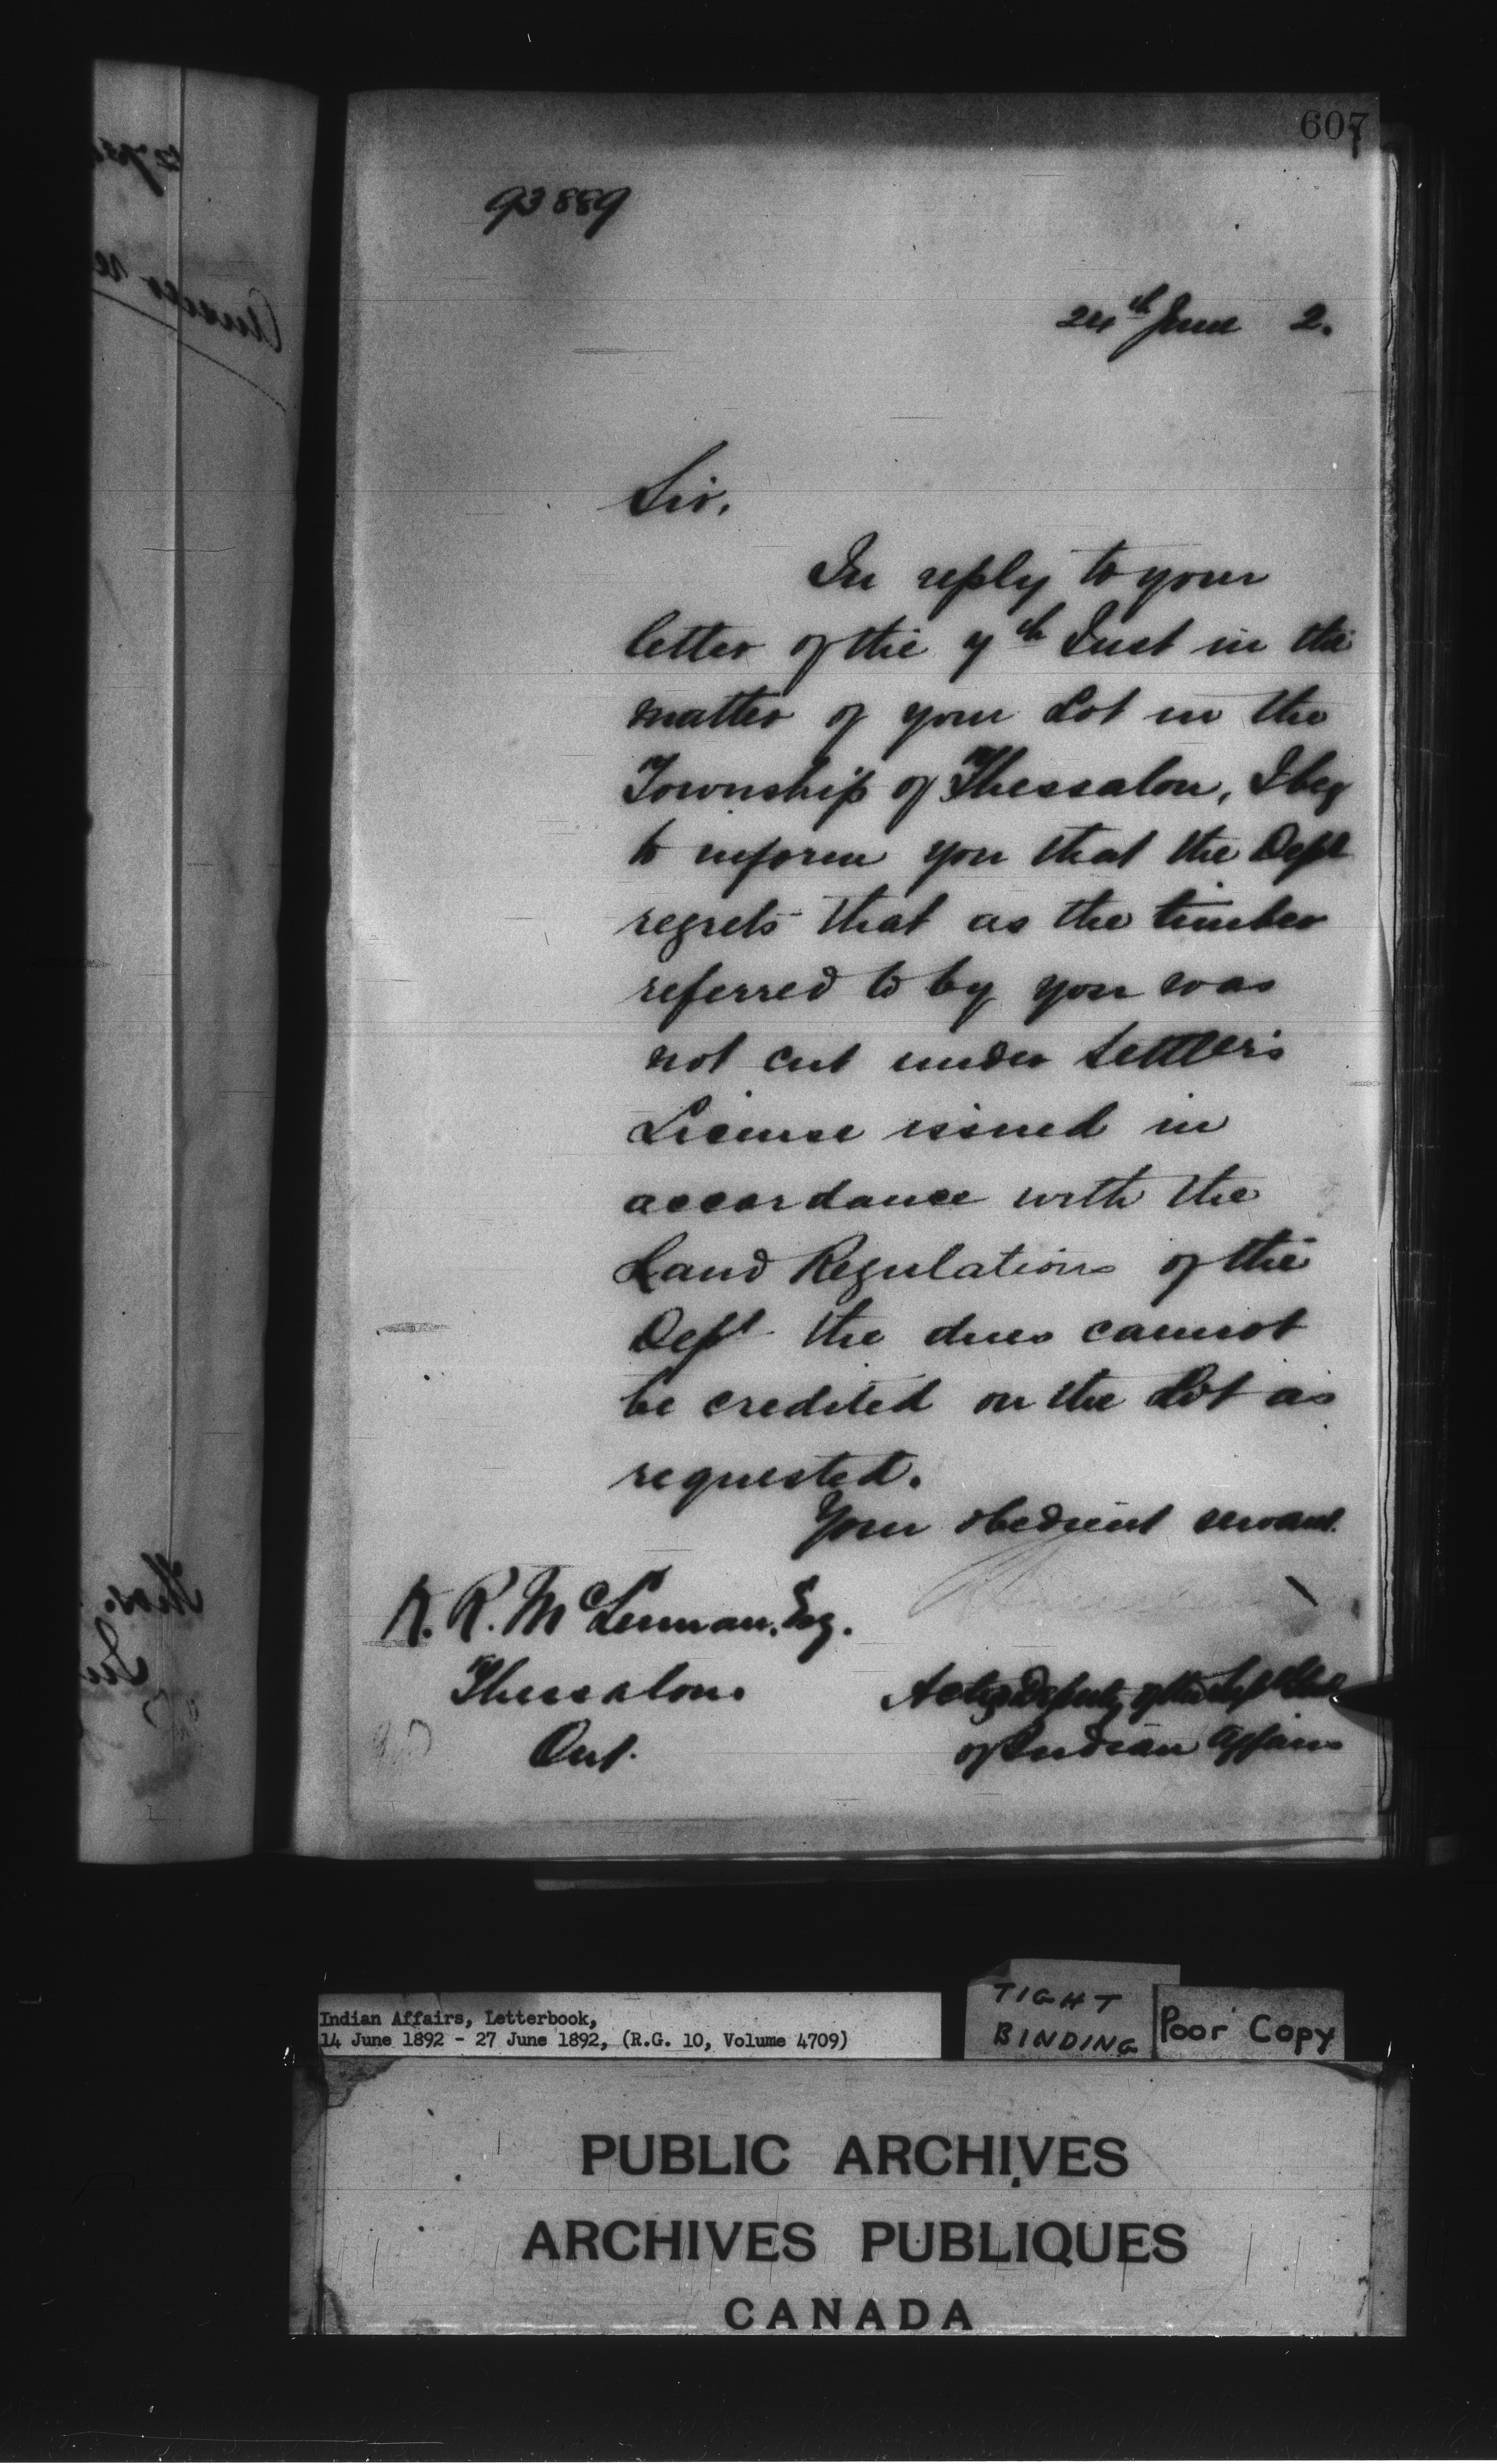 607
93889
24th June 2.
Sir,
In reply to your
letter of the 7th Inst in the
matter of your Lot in the
Township of Thessalon, I beg
to inform you that the Dept
regrets that as the timber
referred to by you was
not cut under Settler's
License issued in
accordance with the
Land Regulations of the
Dept the dues cannot
be credited on the Lot as
requested.
Your obedient servant.
K. R. McLennan, Esq.
Thessalon.
Ont.
Acting Deputy of the Supt Genl
of Indian Affairs
Indian Affairs, Letterbook,
14 June 1892 - 27 June 1892, (R.G. 10, Volume 4709)
TIGHT
BINDING
Poor Copy
PUBLIC ARCHIVES
ARCHIVES PUBLIQUES
CANADA